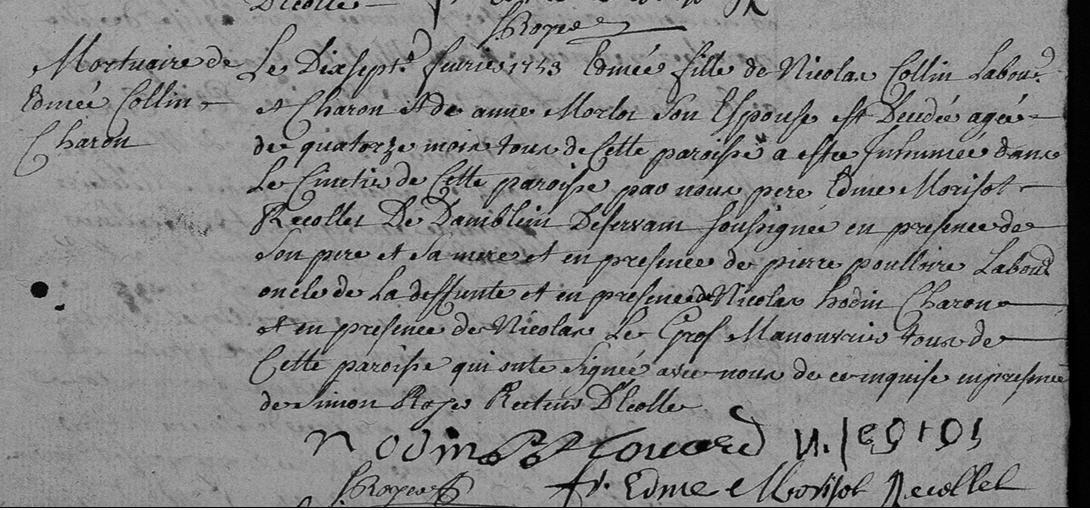 D'Ecolle
SRoyer
Mortuaire de
Edmée Collin
Charon
Le Dixsept.e fevrier 1743 Edmée fille de Nicolas Collin Labour
et Charon et de anne Morlot Son Espouse est Decedée agée
de quatorze mois tous de Cette paroisse a estre Inhumée dans
Le Cimetier de Cette paroisse par nous pere Edme Morisot
Recollet De Damblein Deservant soussignée en presence de
Son pere et Sa mere et en presence de pierre poulloire Labour
oncle de La deffunte et en presence de Nicolas hodin Charon
et en presence de Nicolas Le Gros Manouvrier tous de
Cette paroisse qui onte Signée avec nous de ce inquise en presence
de Simon Royer Recteur D'Ecolle
n odin N. legros
SRoyer fr. Edme Morisot Recollet